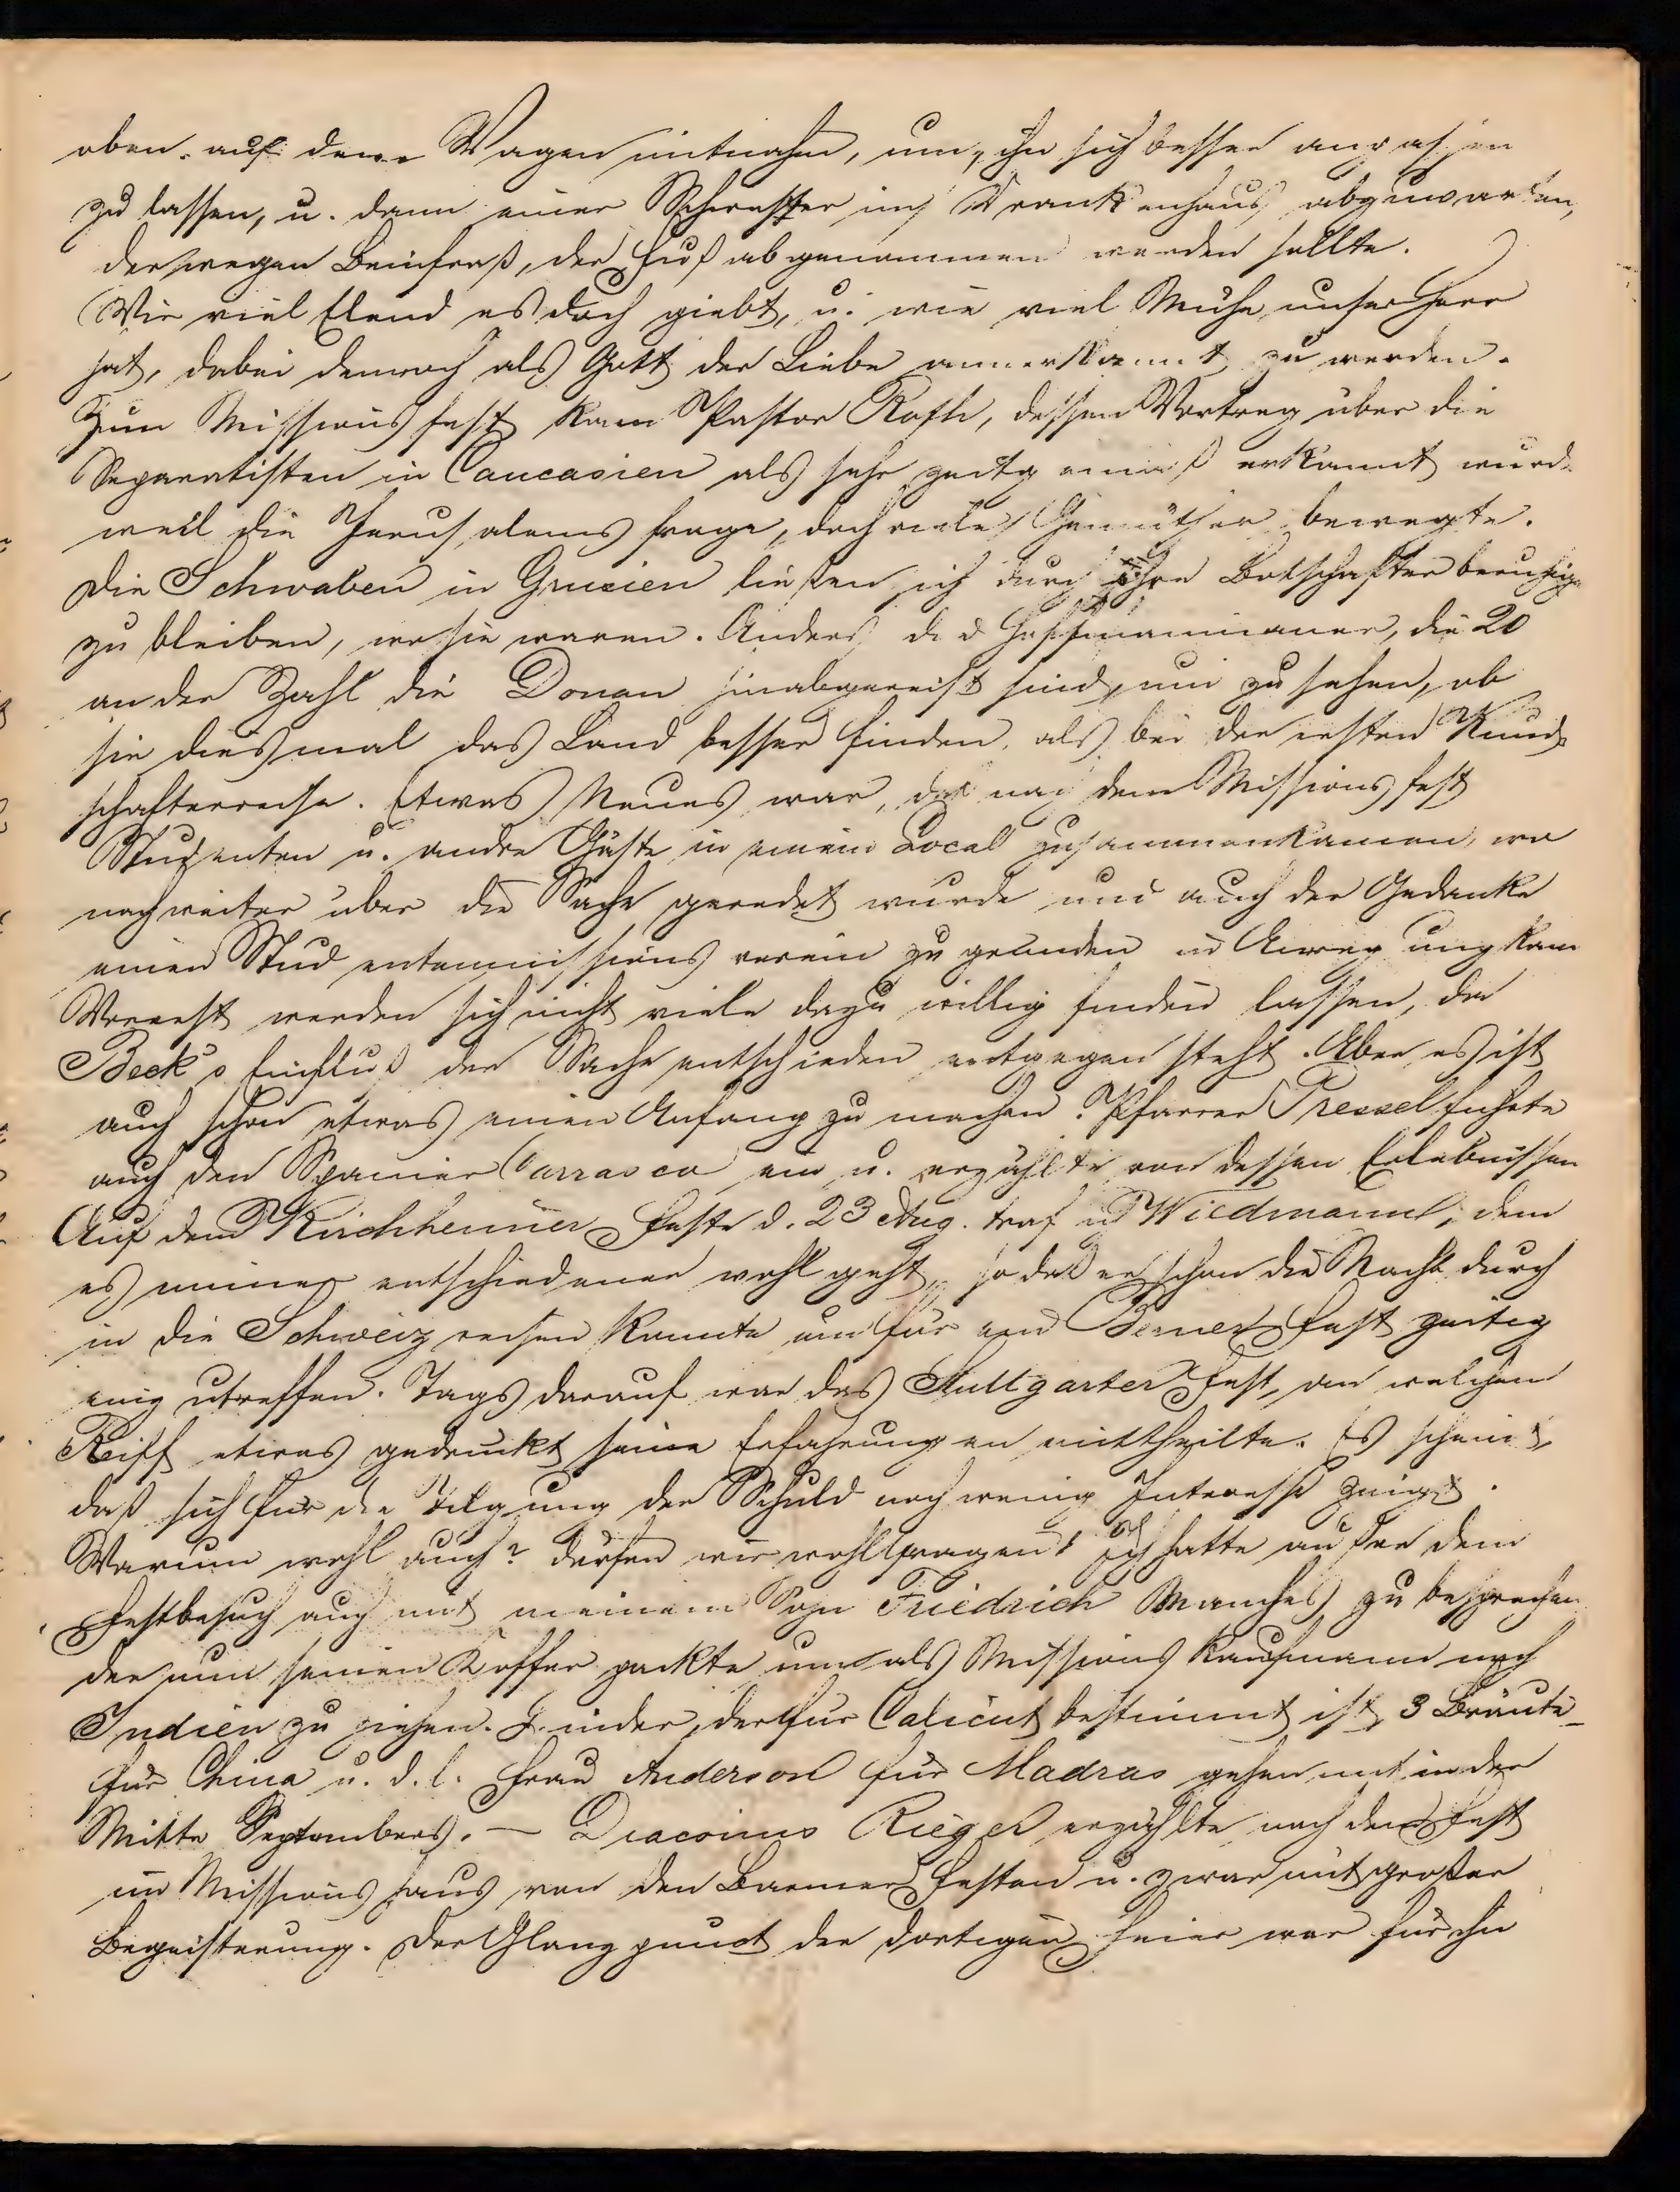 oben auf dem Wagen mitnahm, um ihn sich besser anpassen
zu lassen, u. dann einer Schwester ins Krankenhaus abzuwarten,
der wegen Beinfraß, der Fuß abgenommen werden sollte.
Wie viel Elend es doch giebt, u. wie viel Mühe unser Herr
hat, dabei dennoch als Gott der Liebe anerkannt zu werden.
Zum Missionsfest kam Pastor Roth, dessen Vortrag über die
Separatisten in Caucasien als sehr zeitgemäß erkannt wurde
weil die Jerusalemsfrage, doch viele Gemüther bewegte.
Die Schwaben in Grusien ließen sich durch ihre Botschafter beruhigen
zu bleiben, wo sie waren. Anders die Hoffmannianer, die 20
an der Zahl die Donau hinabgereist sind, um zu sehen, ob
sie diesmal das Land besser finden, als bei der ersten Kund-
schafterreise. Etwas Neues war, daß nach dem Missionsfest
Studenten u. andre Gäste in einem Local zusammenkamen, wo
noch weiter über die Sache geredet wurde und auch der Gedanke
einen Studentenmissionsverein zu gründen in Anregung kam
Vorerst werden sich nicht viele dazu willig finden lassen, da
Beck's Einfluß der Sache entschieden entgegen steht. Aber es ist
auch schon etwas einen Anfang zu machen. Pfarrer Pressel führte
auch den Spanier Carrasco ein u. erzählte von dessen Erlebnissen
Auf dem Kirchheimer Feste d. 23 Aug. traf ich Wiedmann, dem
es immer entschiedener wohl geht, so daß er schon die Nacht durch
in die Schweiz reisen konnte um für ein Berner Fest zeitig
einzutreffen. Tags darauf war das Stuttgarter Fest, an welchem
Reiff etwas gedruckt seine Erfahrungen mittheilte. Es scheint,
daß sich für die Tilgung der Schuld noch wenig Interesse zeigt.
Warum wohl auch? dürfen wir wohl fragen! Ich hatte außer dem
Festbesuch auch mit meinem Sohn Friedrich Manches zu besprechen
der nun seinen Koffer packte um als Missions Kaufmann nach
Indien zu ziehen. der für Calicut bestimmt ist, 3 Bräute
für China u. d. l. Frau Anderson für Madras gehen mit in der
Mitte Septembers. — Diaconus Rieger erzählte nach dem Fest
im Missionshaus von den Barmer Festen u. zwar mit großer
Begeisterung. Der Glanzpunct der dortigen Feier war für ihn